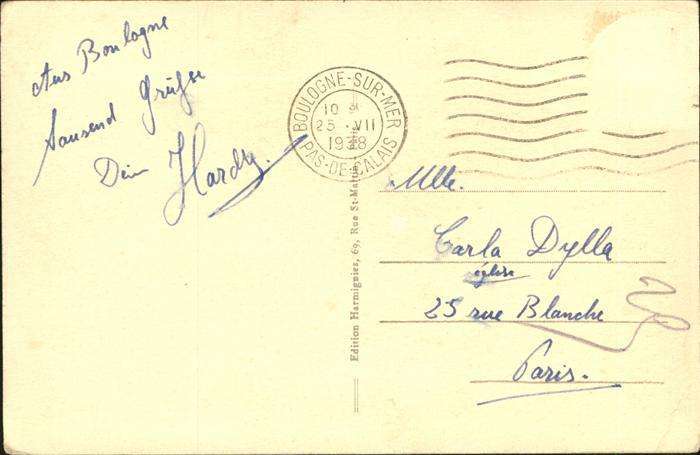 Aus Boulogne
tausend Grüße
Dein Hardy.
BOULOGNE-SUR-MER
10 H
25 · VII
1938
PAS-DE-CALAIS
Edition Harmignies, 69, Rue St-Martin,
Mlle.
Carla Dylla
église
25 rue Blanche
Paris.